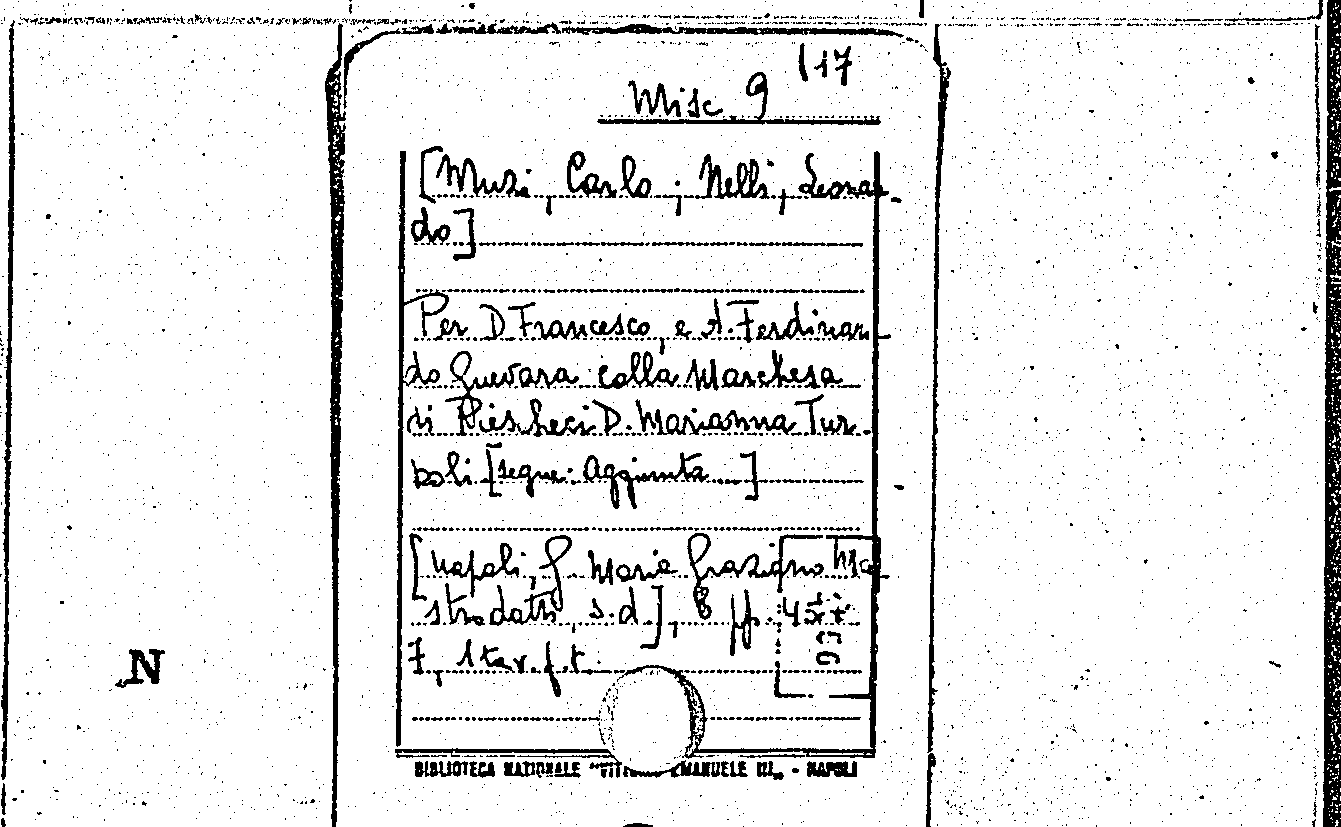 Misc. 9 (17
[Muzi, Carlo; Nelli, Leonar-
do]
Per D. Francesco, e A. Ferdinan-
do Guevara colla Marchesa
di D. Marianna Tur-
boli [segue: Aggiunta...]
[Napoli, G. Maria Graziano Ma
strodatti, s.d.], 8 pp. 45+
7, 1 tav. f.t.
N
BIBLIOTECA NAZIONALE "VITT EMANUELE III„ - NAPOLI